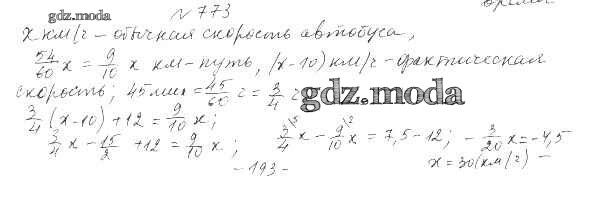 gdz.moda № 773
x км/ч - обычная скорость автобуса,
54/60 x = 9/10 x км - путь, (x-10) км/ч - фактическая
скорость; 45 мин = 45/60 ч = 3/4 ч gdz.moda
3/4 (x-10) + 12 = 9/10 x;
3/4 x - 15/2 + 12 = 9/10 x; 3/4 x - 9/10 x = 7,5 - 12; - 3/20 x = -4,5
x = 30 (км/ч)
- 193 -